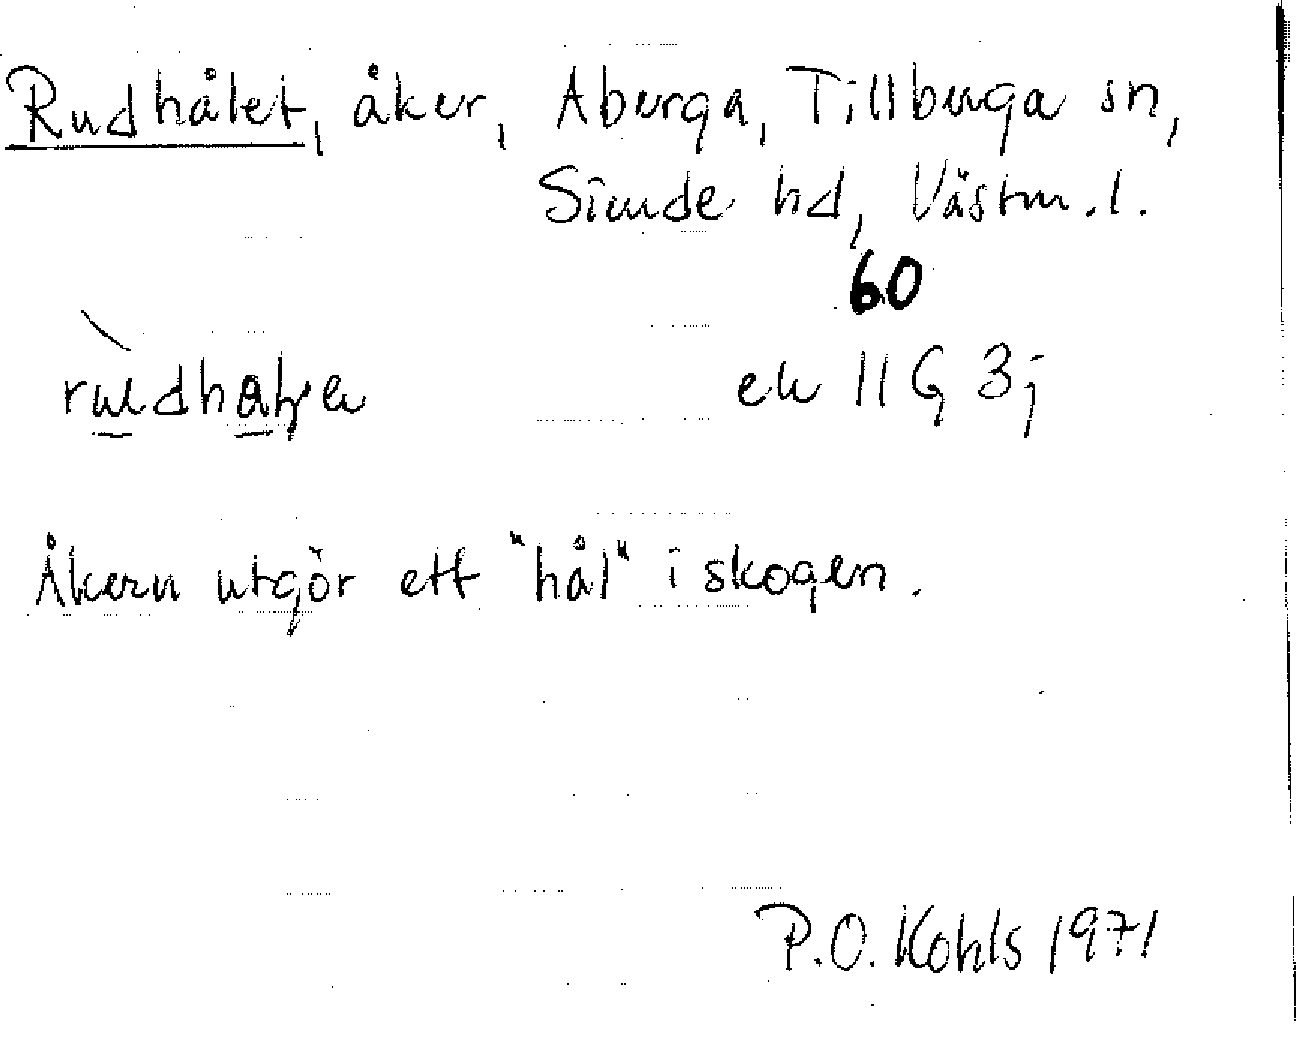 Rudhålet, åker, Aberga, Tillberga sn,
Siende hd, Västm. l.
60
ek 11G 3j
Åkern utgör ett "hål" i skogen.
P.O. Kohls 1971